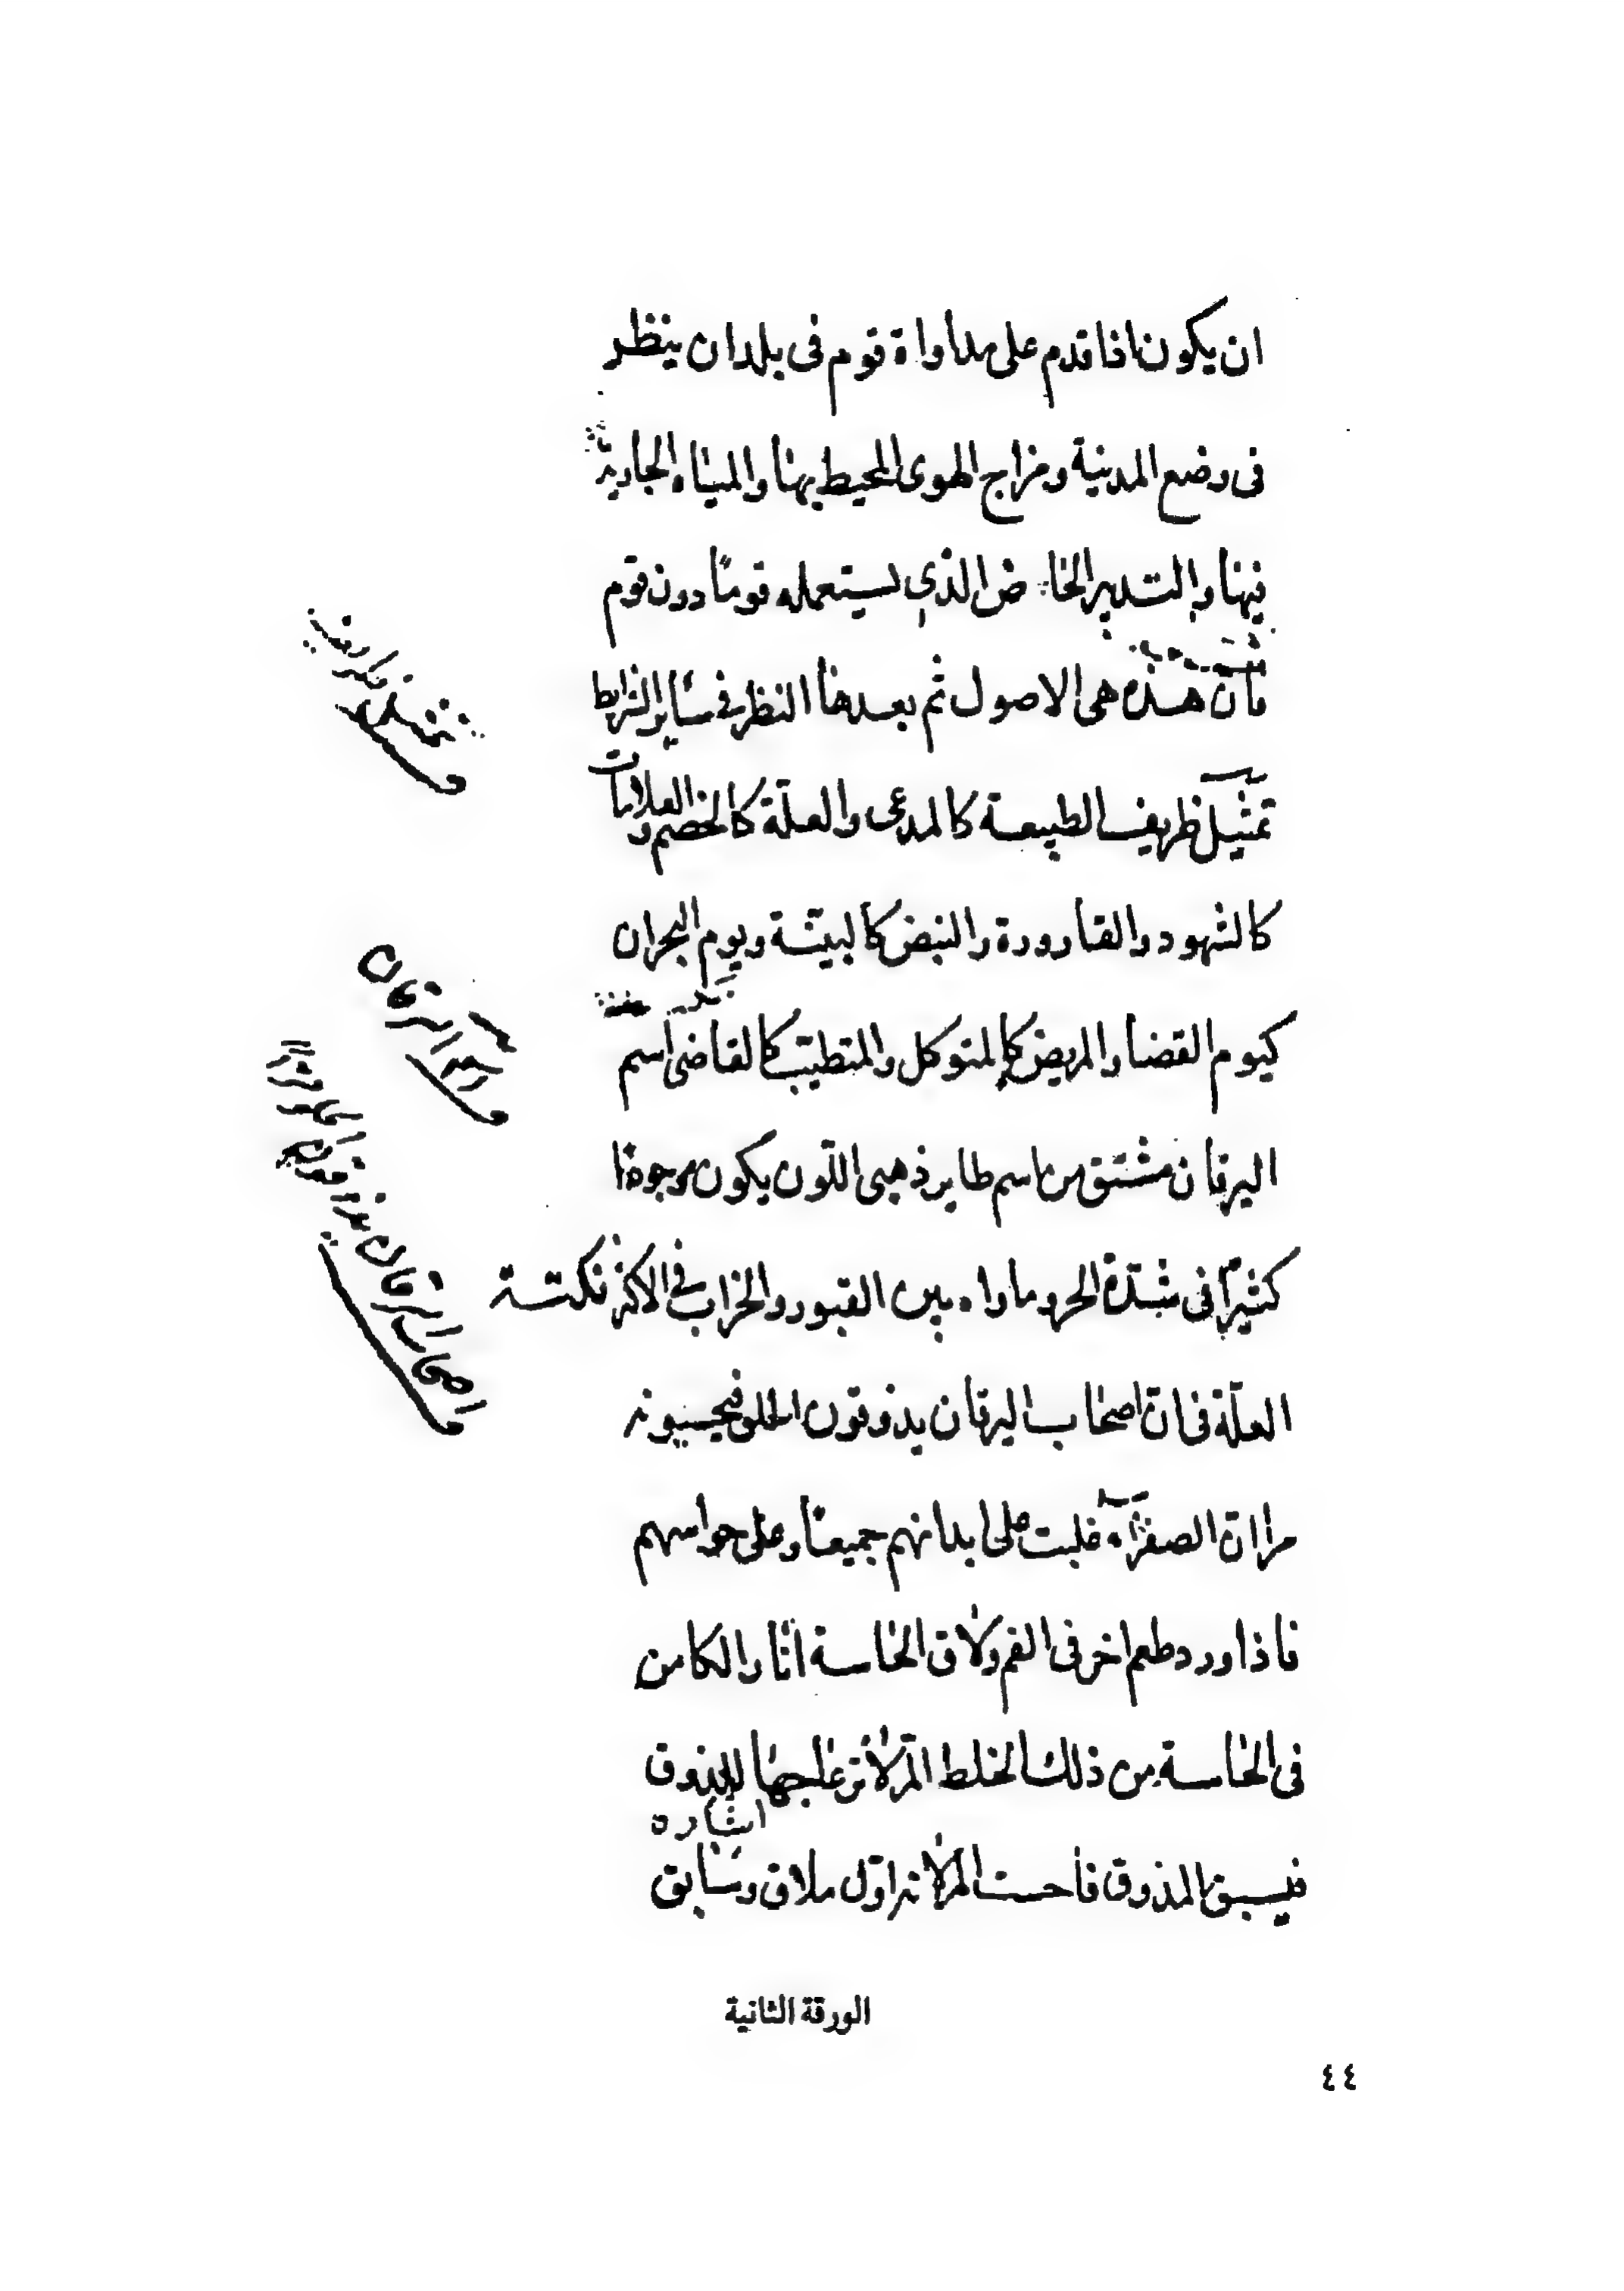 ان يكون اذا قدم على مداواة قوم فى بلد ان ينظر
فى وضع المدنية ومزاج الهوى المحيط بها والمياه الجارية
فيها والتدبير الخاص الذي يستعمله قوما دون قوم
فان هذه هى الاصول ثم بعدها النظر فى ساير الشرايط
تمثيل ظريف الطبيعة كالمدعى والعلّة كالخصم والعلامات
كالشهود والقارورة والنبض كالبيّنة ويوم البحران
كيوم القضا والمريض كالمتوكل والمتطبّب كالقاضى اسم
اليرقان مشتق من اسم طاير ذهبى اللون يكون موجودا
كثيرا فى شدّة الحر وماواه بين القبور والخراب فى الاكثر نكتة
العلّة فى ان اصحاب اليرقان يذوقون الحلو فيحسبونه
مرا ان الصفراء غلبت على ابدانهم جميعا وعلى حواسهم
فاذا ورد طعم اخر فى الفم ولاق الحاسة اثار الكامن
فى الحاسة من ذلك الخلط المرّ لانزعاجها للمذوق
اشاره
فيسبق المذوق فاحست المر لانه اوّل ملاق وسابق
الورقة الثانية
٤٤